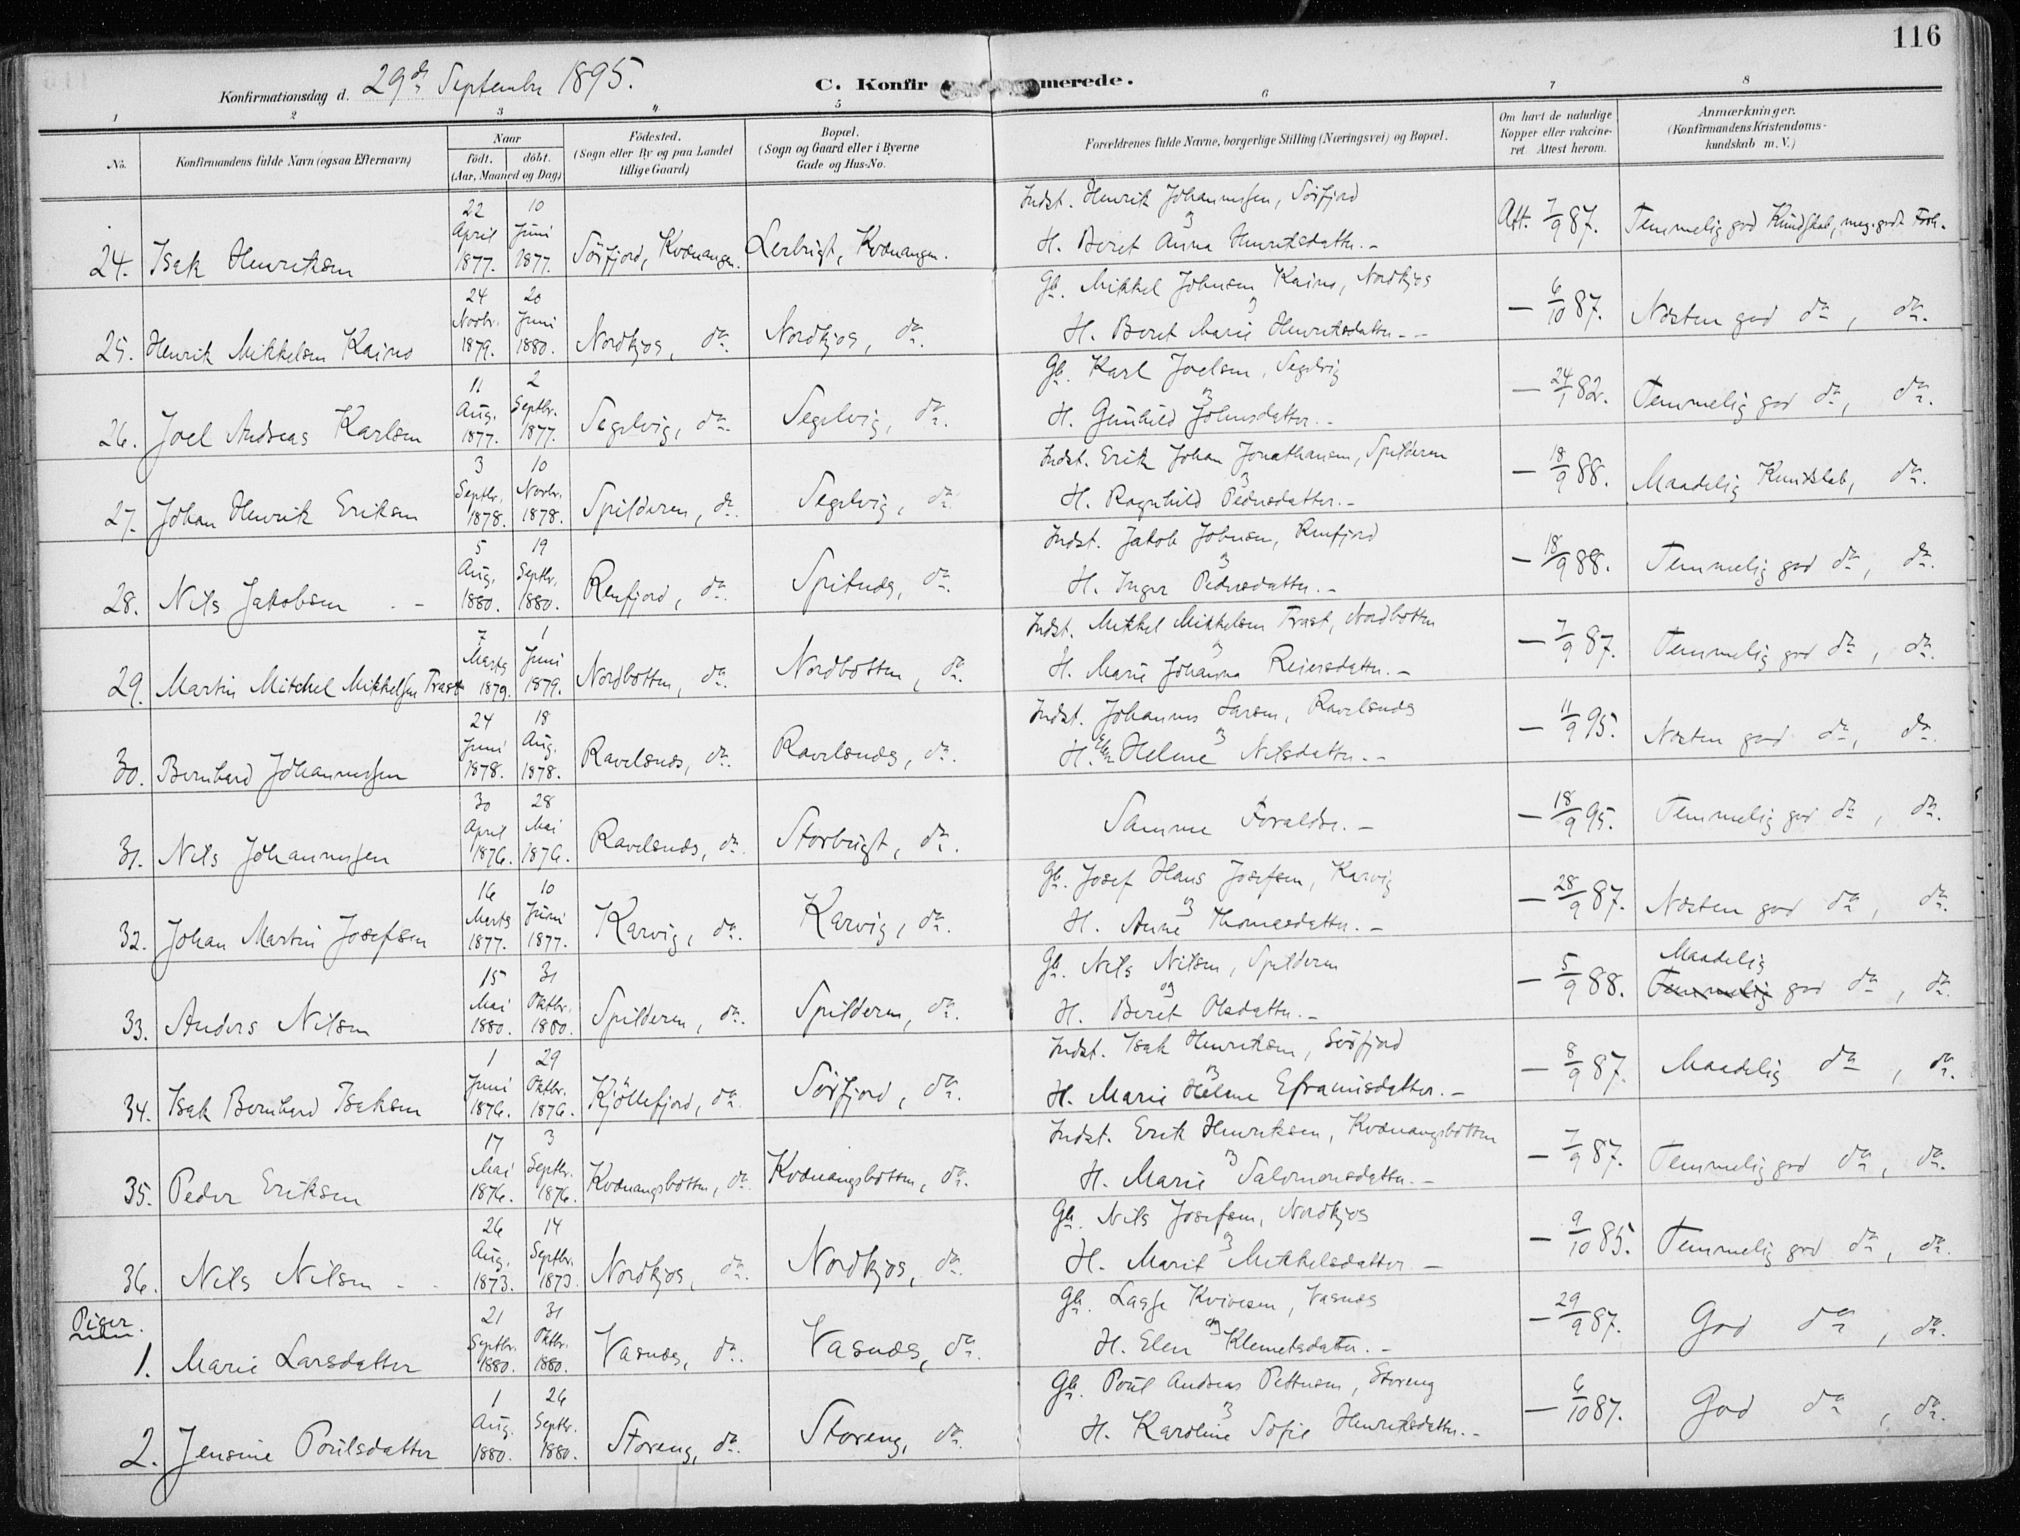 116
Konfirmationsdag d. 29de September 1895.
C. Konfirmerede.
1 2 3 4 5 6 7 8
No.
Konfirmandens fulde Navn (ogsaa Efternavn)
Naar
født. døbt.
(Aar, Maaned og Dag)
Fødested.
(Sogn eller By og paa Landet
tillige Gaard)
Bopæl.
(Sogn og Gaard eller i Byerne
Gade og Hus-No.
Forældrenes fulde Navne, borgerlige Stilling (Næringsvei) og Bopæl.
Om havt de naturlige
Kopper eller vakcine-
ret Attest herom.
Anmærkninger.
(Konfirmandens Kristendoms-
kundskab m. V.)
24. Isak Henriksen 22 April 1877. 10 Juni 1877. Sörfjord, Kvænangen. Lerbugt, Kvænangen. Indst. Henrik Johannessen, Sörfjord og H. Beret Anna Henriksdatter.- Att. 7/9 87. Temmelig god Kundskab, meg. godt Forh.
25. Henrik Mikkelsen Kaino 24 Novbr. 1879. 20 Juni 1880. Nordkjos, do. Nordkjos, do. Gb. Mikkel Johnsen Kaino, Nordkjos og H. Beret Marie Henriksdatter.- - 6/10 87. Næsten god do, do.
26. Joel Andreas Karlsen 11 Aug. 1877. 2 Septbr. 1877. Segelvig, do. Segelvig, do. Gb. Karl Joelsen, Segelvig og H. Gunhild Johnsdatter.- - 24/1 82. Temmelig god do, do.
27. Johan Henrik Eriksen 3 Septbr. 1878. 10 Novbr. 1878. Spilderen, do. Segelvig, do. Indst. Erik Johan Jonathansen, Spilderen og H. Ragnhild Pedersdatter.- - 18/9 88. Maadelig Kundskab, do.
28. Nils Jakobsen 5 Aug. 1880. 19 Septbr. 1880. Renfjord, do. Spitnes, do. Indst. Jakob Johnsen, Renfjord og H. Inger Pedersdatter.- - 18/9 88. Temmelig god do, do.
29. Martin Mitchel Mikkelsen Trast 7 Marts 1879. 1 Juni 1879. Nordbotten, do. Nordbotten, do. Indst. Mikkel Mikkelsen Trast, Nordbotten og H. Marie Johanna Reiersdatter.- - 7/9 87. Temmelig god do, do.
30. Bernhard Johannessen 24 Juni 1878. 18 Aug. 1878. Ravelsnæs, do. Ravelsnæs, do. Indst. Johannes Larsen, Ravelsnæs og H. Ellen Helene Nilsdatter.- - 11/9 95. Næsten god do, do.
31. Nils Johannessen 30 April 1876. 28 Mai 1876. Ravelsnæs, do. Storbugt, do. Samme Forældre.- - 18/9 95. Temmelig god do, do.
32. Johan Martin Josefsen 16 Marts 1877. 10 Juni 1877. Karvig, do. Karvig, do. Gb. Josef Hans Josefsen, Karvig og H. Anne Thomasdatter.- - 28/9 87. Næsten god do, do.
33. Anders Nilsen 15 Mai 1880. 31 Oktbr. 1880. Spilderen, do. Spilderen, do. Gb. Nils Nilsen, Spilderen og H. Beret Olsdatter.- - 5/9 88. Maadelig Temmelig god do, do.
34. Isak Bernhard Isaksen 1 Juni 1876. 29 Oktbr. 1876. Kjöllefjord, do. Sörfjord, do. Indst. Isak Henriksen, Sörfjord og H. Marie Helene Eframisdatter.- - 8/9 87. Maadelig do, do.
35. Peder Eriksen 17 Mai 1876. 3 Septbr. 1876. Kvænangsbotten, do. Kvænangsbotten, do. Indst. Erik Henriksen, Kvænangsbotten og H. Marie Salomonsdatter.- - 7/9 87. Temmelig god do, do.
36. Nils Nilsen 26 Aug. 1873. 14 Septbr. 1873. Nordkjos, do. Nordkjos, do. Gb. Nils Josefsen, Nordkjos og H. Marit Mikkelsdatter - - 9/10 85. Temmelig god do, do.
Piger.
1. Marie Larsdatter 21 Septbr. 1880. 31 Oktbr. 1880. Vasnæs, do. Vasnæs, do. Gb. Lasse Kvivesen, Vasnæs og H. Elen Klemetsdatter.- - 29/9 87. God do, do.
2. Jensine Poulsdatter 1 Aug. 1880. 26 Septbr. 1880. Storeng, do. Storeng, do. Gb. Poul Andreas Pettersen, Storeng og H. Karoline Sofie Henriksdatter.- - 6/10 87. God do, do.